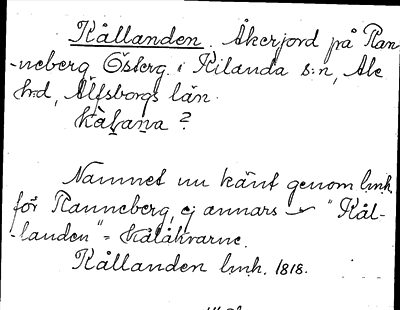 Kållanden. Åkerjord på Ran-
-neberg Österg. i Kilanda s:n, Ale
hd, Älfsborgs län.
kàḷaṇa ?
Namnet nu känt genom lmh.
för Ranneberg, ej annars – "Kål-
-landen" = kålåkrarne.
Kållanden lmh. 1818.